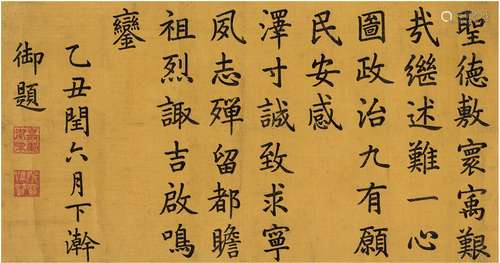 聖德敷寰寓艱
哉繼述難一心
圖政治九有願
民安感
澤寸誠致求寧
夙志殫留都瞻
祖烈諏吉啟鳴
鑾
乙丑閏六月下澣
御題